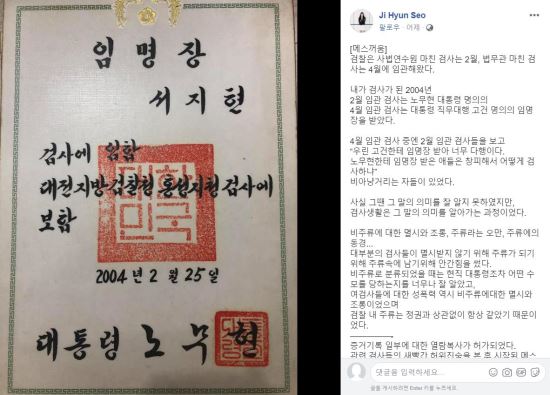 임명장
서지현
검사에 임함
대전지방검찰청 홍성지청 검사에
보함
2004년 2월 25일
대통령 노무현
Ji Hyun Seo
팔로우 · 어제 ·
[메스꺼움]
검찰은 사법연수원 마친 검사는 2월, 법무관 마친 검
사는 4월에 임관해왔다.
내가 검사가 된 2004년
2월 임관 검사는 노무현 대통령 명의의
4월 임관 검사는 대통령 직무대행 고건 명의의 임명
장을 받았다.
4월 임관 검사 중엔 2월 임관 검사들을 보고
"우리 고건한테 임명장 받아 너무 다행이다.
노무현한테 임명장 받은 애들은 창피해서 어떻게 검
사하냐"
비아냥거리는 자들이 있었다.
사실 그땐 그 말의 의미를 잘 알지 못하였지만,
검사생활은 그 말의 의미를 알아가는 과정이었다.
비주류에 대한 멸시와 조롱, 주류라는 오만, 주류에의
동경...
대부분의 검사들이 멸시받지 않기 위해 주류가 되기
위해 주류속에 남기위해 안간힘을 썼다.
비주류로 분류되었을 때는 현직 대통령조차 어떤 수
모를 당하는지를 너무나 잘 알았고,
여검사들에 대한 성폭력 역시 비주류에대한 멸시와
조롱이었으며
검찰 내 주류는 정권과 상관없이 항상 같았기 때문이
었다.
증거기록 일부에 대한 열람복사가 허가되었다.
관련 검사들의 새빨간 허위진술을 본 후 시작된 메스
댓글을 입력하세요...
글을 게시하려면 Enter 키를 누르세요.